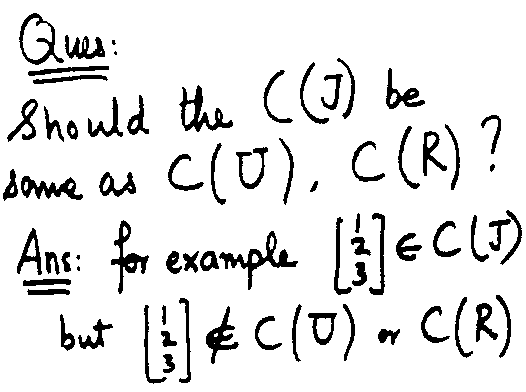 Ques:
Should the C(J) be
same as C(U), C(R)?
Ans: for example [1 2 3] ∈ C(J)
but [1 2 3] ∉ C(U) or C(R)